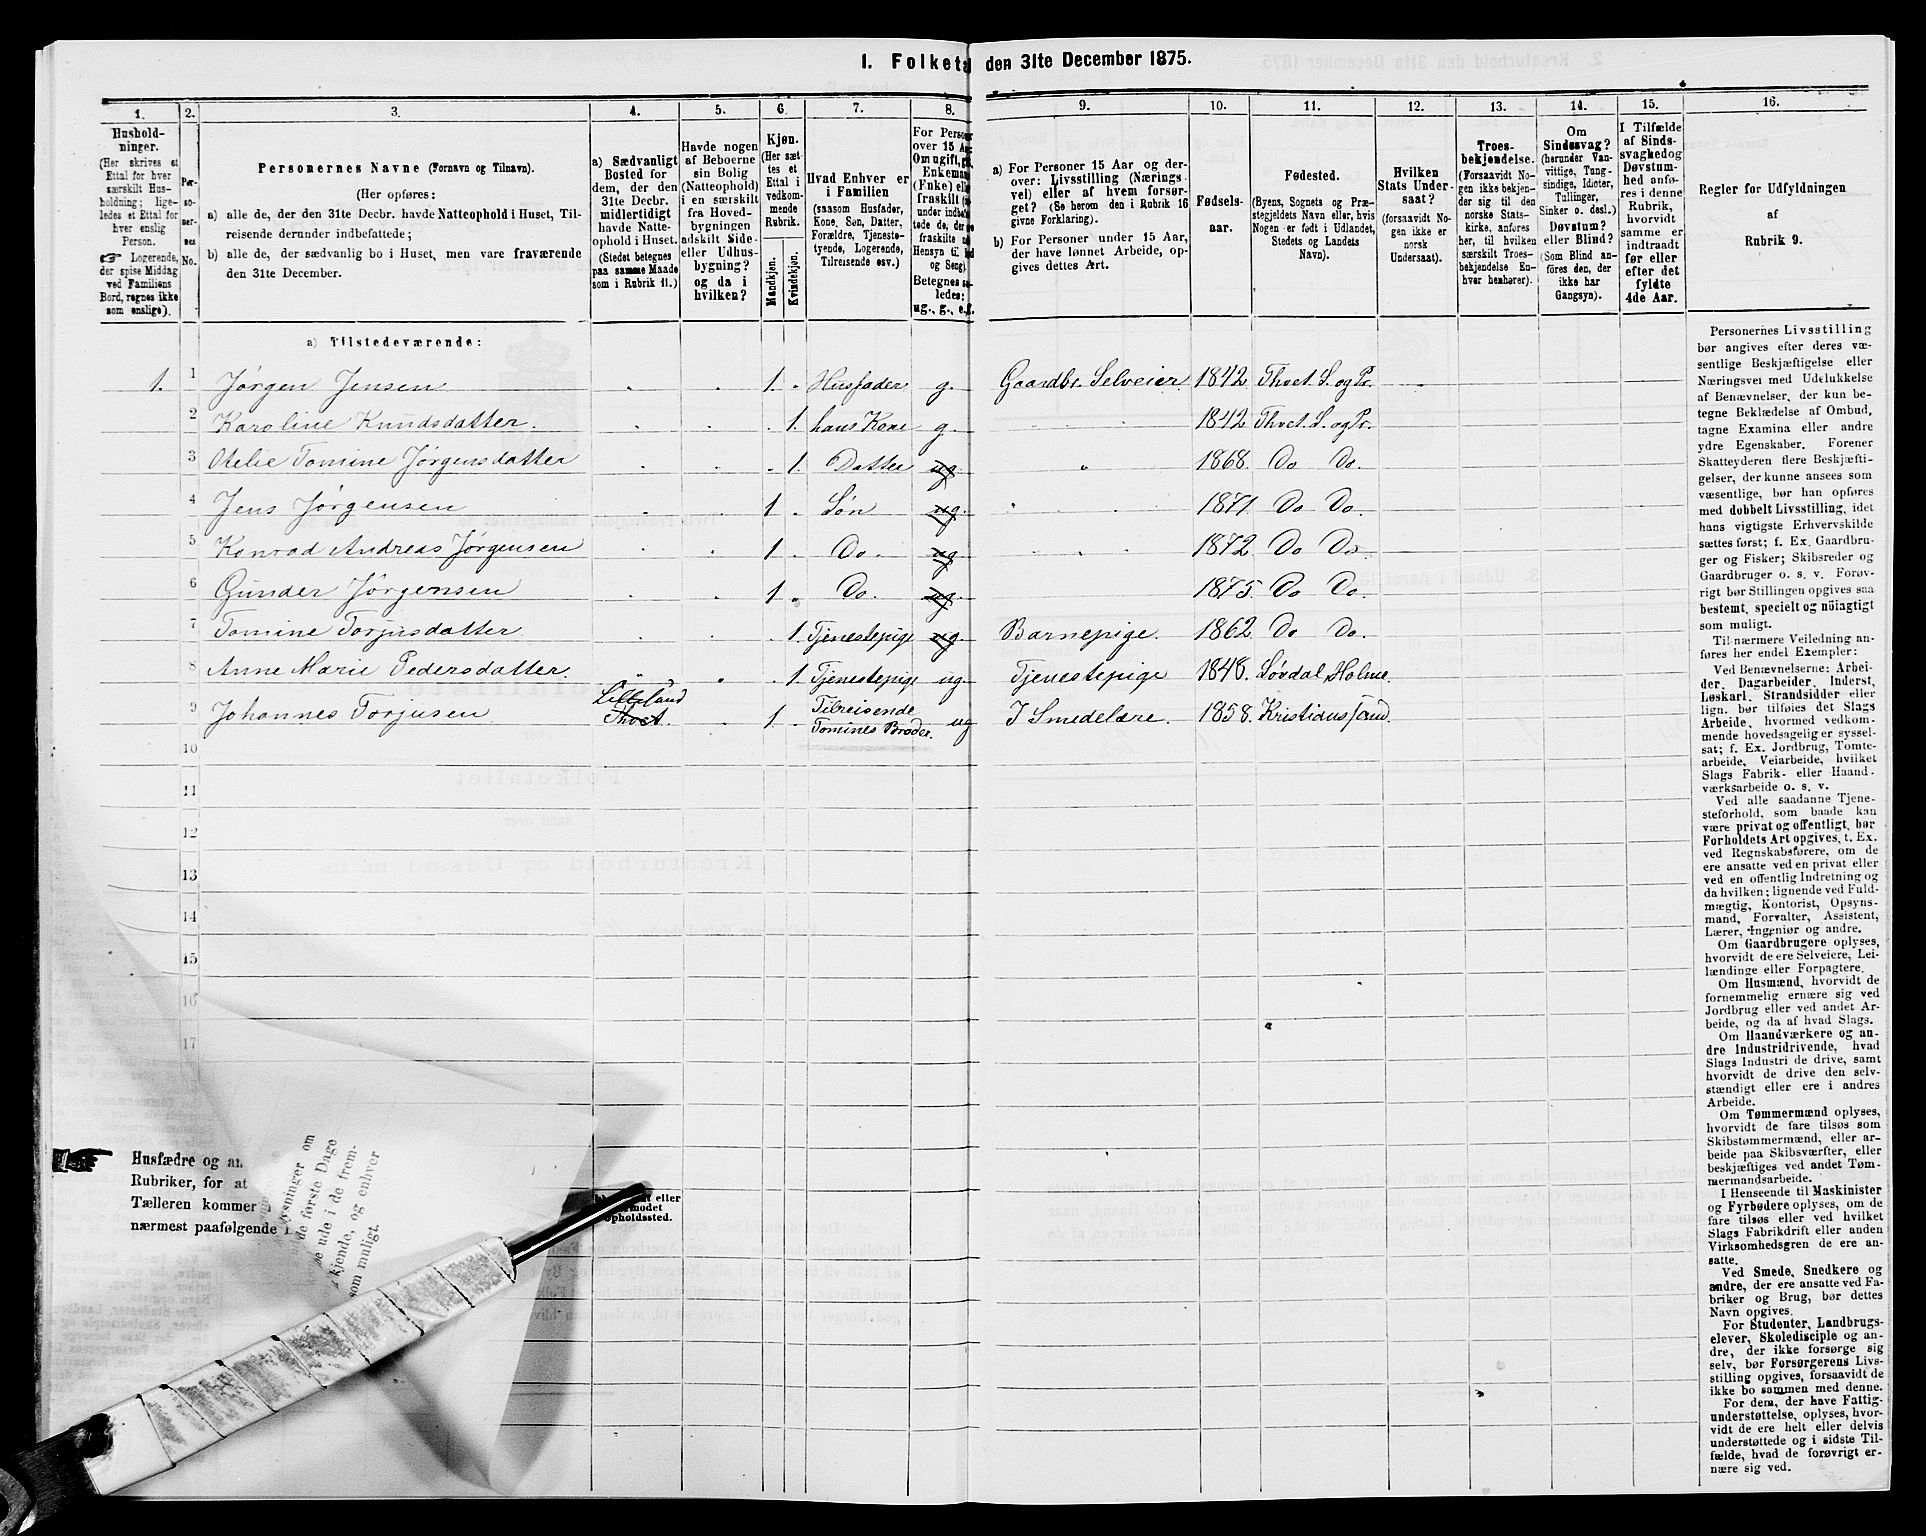 I. Folketa den 31te December 1875.
1.
2.
3.
4.
5.
6.
7.
8.
9.
10.
11.
12.
13.
14.
15.
16.
Hushold-
ninger.
(Her skrives et
Ettal for hver
særskilt Hus-
holdning; lige-
ledes et Ettal for
hver enslig
Person.
☞ Logerende,
der spise Middag
ved Familiens
Bord, regnes ikke
som enslige).
Per-
so-
ner-
nes
No.
Personernes Navne (Fornavn og Tilnavn).
(Her opføres:
a) alle de, der den 31te Decbr. havde Natteophold i Huset, Til-
reisende derunder indbefattede;
b) alle de, der sædvanlig bo i Huset, men vare fraværende
den 31te December.
a) Sædvanligt
Bosted for
dem, der den
31te Decbr.
midlertidigt
havde Natte-
ophold i Huset.
(Stedet betegnes
paa samme Maade
som i Rubrik 11.)
Havde nogen
af Beboerne
sin Bolig
(Natteophold)
i en særskilt
fra Hoved-
bygningen
adskilt Side-
eller Udhus-
bygning?
og da i
hvilken?
Kjøn.
(Her sæt-
tes et
Ettal i
vedkom-
mende
Rubrik.
Mandkjøn.
Kvindekjøn.
Hvad Enhver er
i Familien
(saasom Husfader,
Kone, Søn, Datter,
Forældre, Tjeneste-
tyende, Logerende,
Tilreisende osv.)
For Person
over 15 Aa
Om ugift, gi
Enkeman
(Enke) elle
fraskilt (
under indbe
tede de, der
fraskilte
Hensyn til
og Seng).
Betegnes sa-
ledes:
ug., g., e.f.
a) For Personer 15 Aar og der-
over: Livsstilling (Nærings-
vei) eller af hvem forsør-
get? (Se herom den i Rubrik 16
givne Forklaring).
b) For Personer under 15 Aar,
der have lønnet Arbeide, op-
gives dettes Art.
Fødsels-
aar.
Fødested.
(Byens, Sognets og Præ-
stegjeldets Navn eller, hvis
Nogen er født i Udlandet,
Stedets og Landets
Navn).
Hvilken
Stats Under-
saat?
(forsaavidt No-
gen ikke er
norsk
Undersaat).
Troes-
bekjendelse.
(Forsaavidt No-
gen ikke bekjen-
der sig til den
norske Stats-
kirke, anføres
her, til hvilken
særskilt Troes-
bekjendelse En-
hver henhører).
Om
Sindssvag?
(herunder Van-
vittige, Tung-
sindige, Idioter,
Tullinger,
Sinker o. desl.)
Døvstum?
eller Blind?
(Som Blind an-
føres den, der
ikke har
Gangsyn).
I Tilfælde
af Sinds-
svaghed og
Døvstum-
hed anfø-
res i denne
Rubrik,
hvorvidt
samme er
indtraadt
før eller
efter det
fyldte
4de Aar.
Regler for Udfyldningen
af
Rubrik 9.
a) Tilstedeværende:
1. 1 Jørgen Jensen 1. Husfader g. Gaardbr. Selveier 1842 Thvet S. og Pr.
2 Karoline Knudsdatter. 1. hans Kone g. 1842 Thvet. S. og Pr.
3 Otelie Tomine Jørgensdatter 1. Datter ug 1868. Do Do.
4 Jens Jørgensen 1 Søn ug. 1871. Do Do.
5 Konrad Andreas Jørgensen 1 Do. ug 1872 Do Do.
6 Gunder Jørgensen 1 Do. ug 1875. Do Do.
7 Tomine Torjusdatter 1. Tjenestepige ug. Barnepige. 1862 Do Do.
8 Anne Marie Pedersdatter. 1. Tjenestepige ug. Tjenestepige 1848. Søvdal, Holme.
9 Johannes Torjusen Thvet. 1 Tilreisende Tomines Broder. ug I Smedelære. 1858. Kristianssand.
10
11
12
13
14
15
16
17
Personernes Livsstilling
bør angives efter deres væ-
sentlige Beskjæftigelse eller
Næringsvei med Udelukkelse
af Benævnelser, der kun be-
tegne Beklædelse af Ombud,
tagne Examina eller andre
ydre Egenskaber. Forener
Skatteyderen flere Beskjæfti-
gelser, der kunne ansees som
væsentlige, bør han opføres
med dobbelt Livsstilling, idet
hans vigtigste Erhvervskilde
sættes først; f. Ex. Gaardbru-
ger og Fisker; Skibsreder og
Gaardbruger o. s. v. Forøv-
rigt bør Stillingen opgives saa
bestemt, specielt og nöiagtigt
som muligt.
Til nærmere Veiledning an-
føres her endel Exempler:
Ved Benævnelserne: Arbei-
der, Dagarbeider, Inderst,
Løskarl, Strandsidder eller
lign. bør tilføies det Slags
Arbeide, hvormed vedkom-
mende hovedsagelig er syssel-
sat; f. Ex. Jordbrug, Tomte-
arbeide, Veiarbeide, hvilket
Slags Fabrik- eller Haand-
værksarbeide o. s. v.
Ved alle saadanne Tjene-
steforhold, som baade kan
være privat og offentligt, bør
Forholdets Art opgives, t. Ex.
ved Regnskabsførere, om de
ere ansatte ved en privat eller
ved en offentlig Indretning og
da hvilken; lignende ved Fuld-
mægtig, Kontorist, Opsyns-
mand, Forvalter, Assistent,
Lærer, Ingeniør og andre.
Om Gaardbrugere oplyses,
hvorvidt de ere Selveiere, Lei-
lændinge eller Forpagtere.
Om Husmænd, hvorvidt de
fornemmelig ernære sig ved
Jordbrug eller ved andet Ar-
beide, og da af hvad Slags.
Om Haandværkere og an-
dre Industridrivende, hvad
Slags Industri de drive, samt
hvorvidt de drive den selv-
stændigt eller ere i andres
Arbeide.
Om Tømmermænd oplyses,
hvorvidt de fare tilsøs som
Skibstømmermænd, eller ar-
beide paa Skibsværfter, eller
beskjæftiges ved andet Tøm-
mermandsarbeide.
I Henseende til Maskinister
og Fyrbødere oplyses, om de
fare tilsøs eller ved hvilket
Slags Fabrikdrift eller anden
Virksomhedsgren de ere an-
satte.
Ved Smede, Snedkere og
andre, der ere ansatte ved Fa-
briker og Brug, bør dettes
Navn opgives.
For Studenter, Landbrugs-
elever, Skoledisciple og an-
dre, der ikke forsørge sig
selv, bør Forsørgerens Livs-
stilling opgives, forsaavidt de
ikke bo sammen med denne.
For dem, der have Fattig-
understøttelse, oplyses, hvor-
vidt de ere helt eller delvis
understøttede og i sidste Til-
fælde, hvad de forøvrigt er-
nære sig ved.
Husfædre og an
Rubriker, for at
Tælleren kommer
nærmest paafølgende
lysninger om
de første Dage
ude i de trem-
kjende, og enhver
som muligt.
t eller
modet
opholdssted.